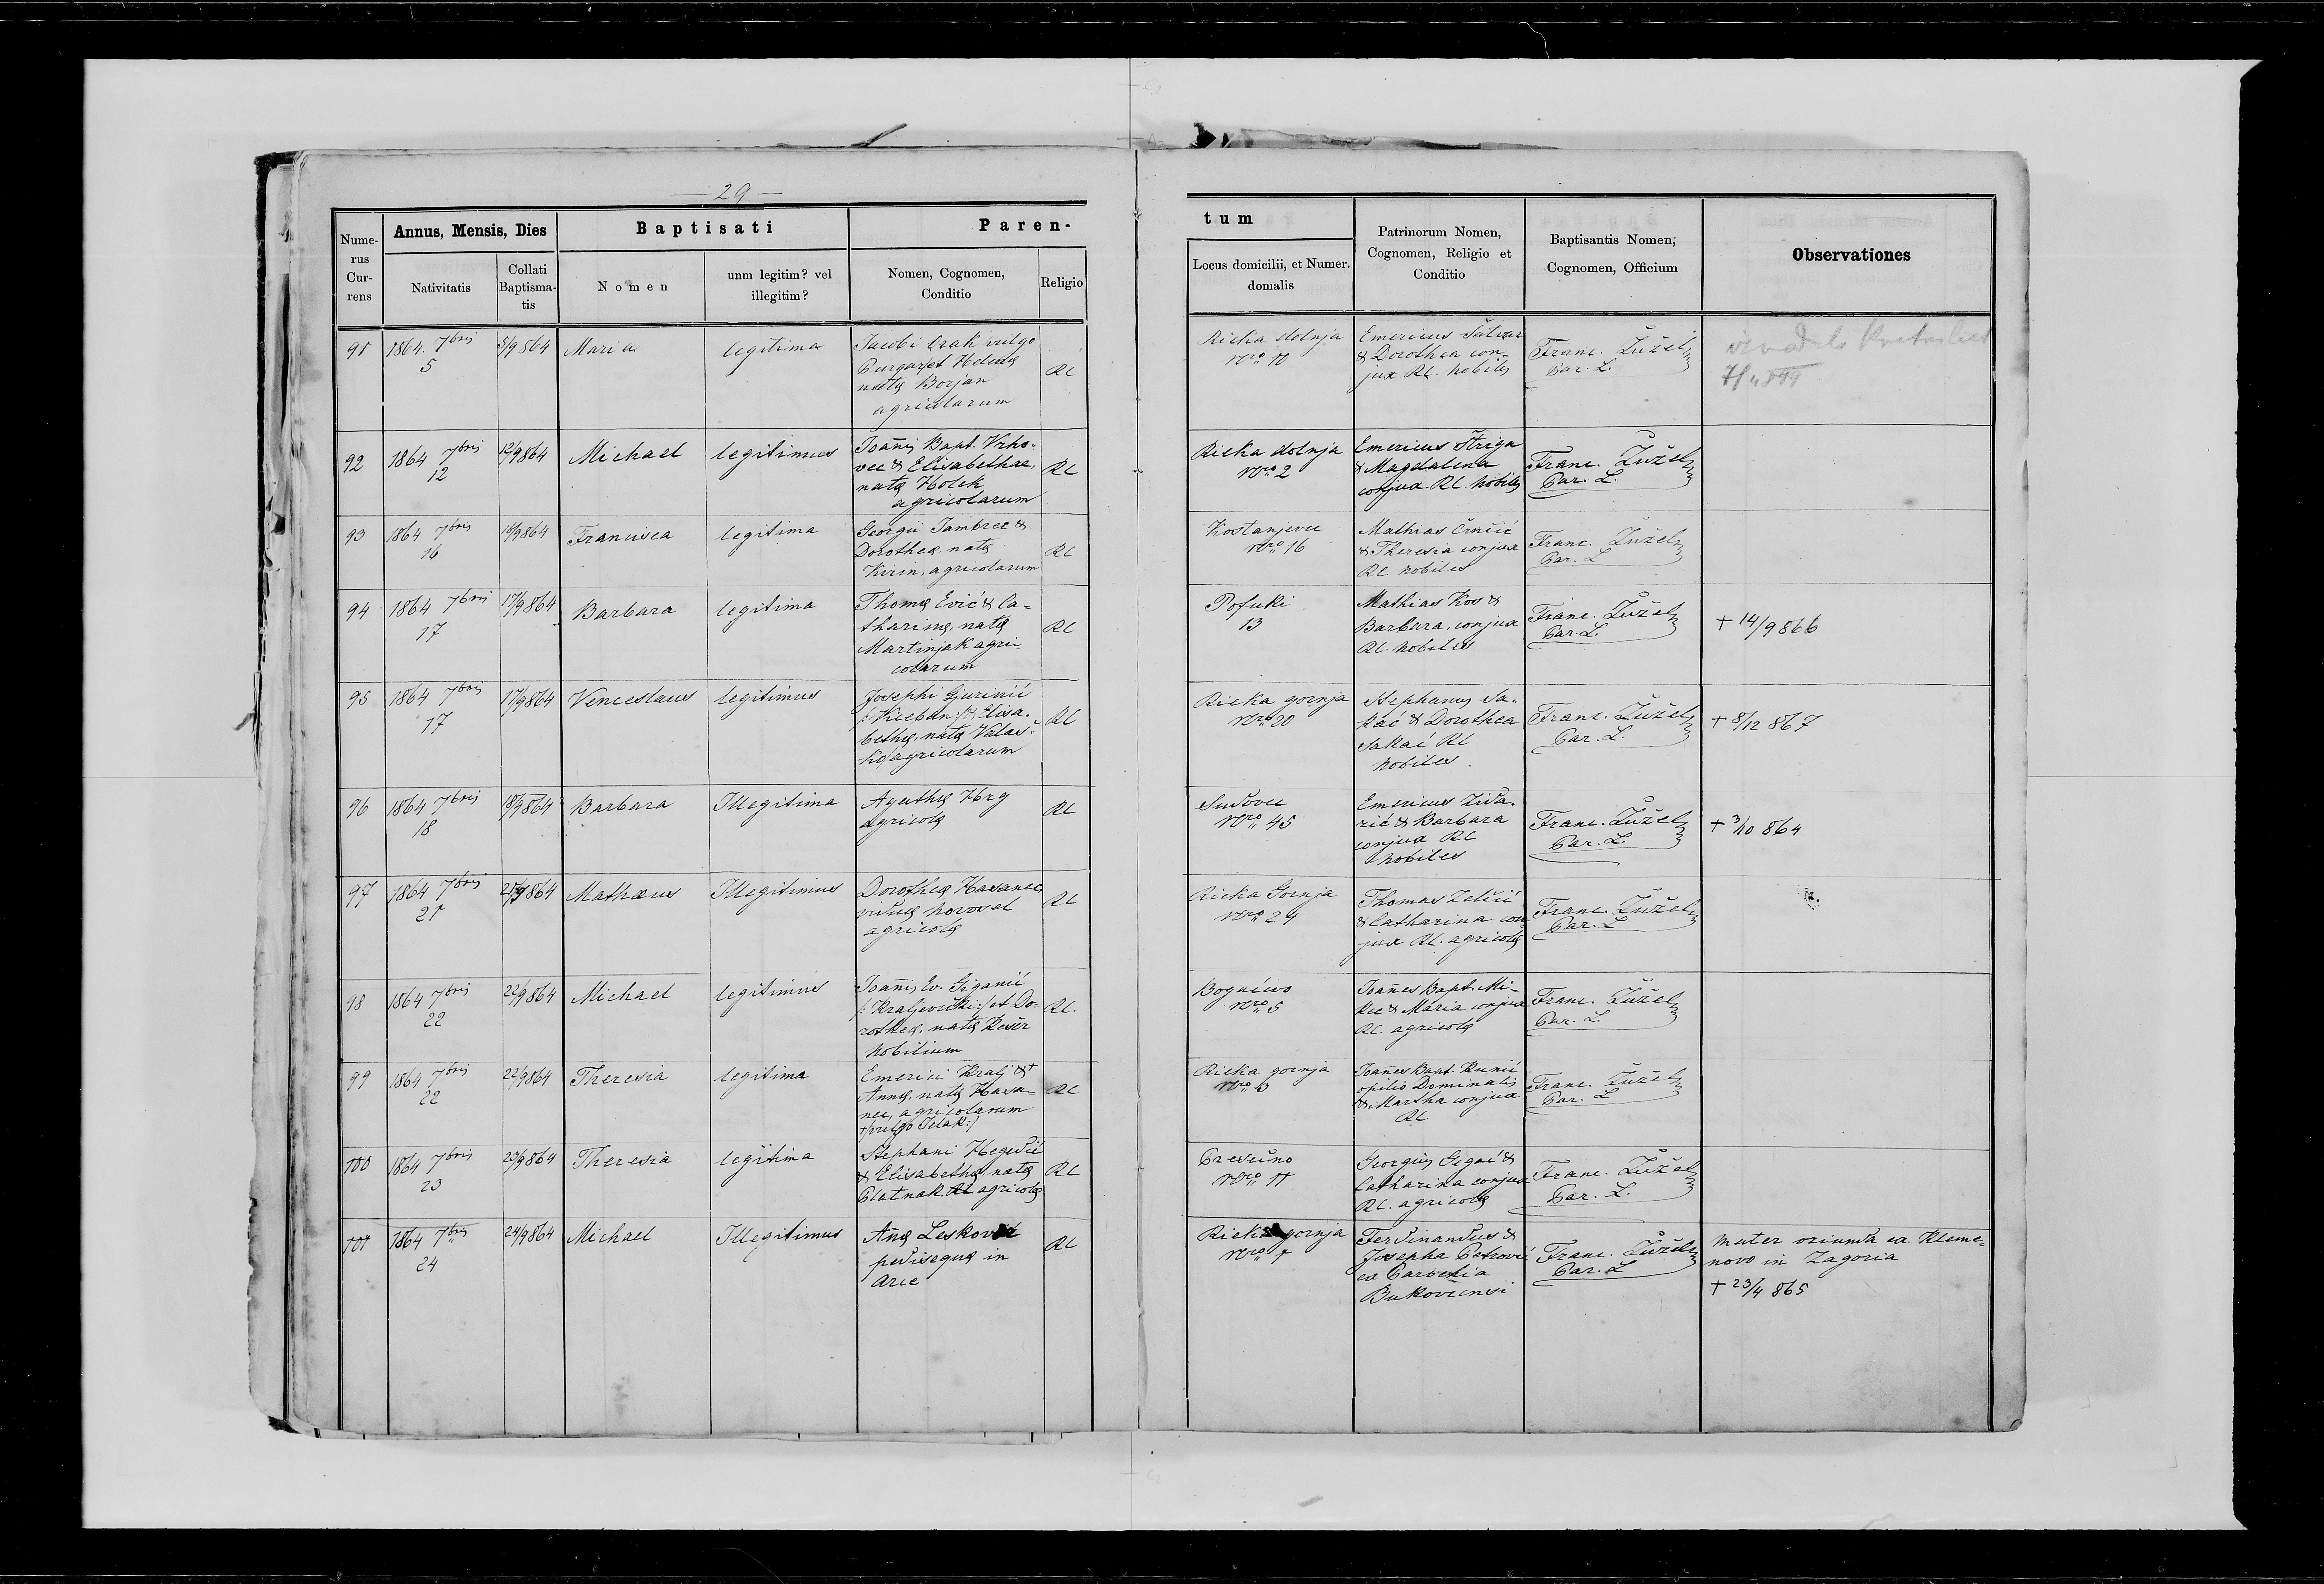 29
Nume-
rus
Cur-
rens
Annus, Mensis, Dies
Nativitatis
Collati
Baptisma-
tis
Baptisati
Nomen
unm legitim? vel
illegitim?
Paren-
Nomen, Cognomen,
Conditio
Religio
tum
Locus domicilii, et Numer.
domalis
Patrinorum Nomen,
Cognomen, Religio et
Conditio
Baptisantis Nomen,
Cognomen, Officium
Observationes
91
1864. 7bris
5
5/9 864
Maria
legitima
Jacobi vulgo
et Helenę
natę Borjan
agricolarum
RC
Rieka dolnja
Nro 10
Emericus
& Dorothea con-
jux RC. nobiles
Franc. Žužel
Par. L.
92
1864 7bris
12
12/9 864
Michael
legitimus
Joañis Bapt. Vrho-
vec & Elisabethae,
natę Holek
agricolarum
RC
Rieka dolnja
Nro 2
Emericus Striga
& Magdalena
conjux. RC. nobiles
Franc. Žužel
Par. L.
93
1864 7bris
16
16/9 864
Francisca
legitima
Georgii Jambrec &
Dorotheę natę
Kirin, agricolarum
RC
Kostanjevec
Nro 16
Mathias Črnčić
& Theresia conjux
RC. nobiles
Franc. Žužel
Par. L
94
1864 7bris
17
17/9 864
Barbara
legitima
Thomę Ević & Ca-
tharinę, natę
Martinjak agri-
colarum
RC
Pofuki
13
Mathias Kos &
Barbara, conjux
RC. nobiles
Franc. Žužel
Par. L.
+ 14/9 866
95
1864 7bris
17
17/9 864
Venceslaus
legitimus
Josephi Gjurinić
& Elisa-
bethę, natę
agricolarum
RC
Rieka gornja
Nro 20
Stephanus Sa-
kać & Dorothea
Sakać RC
nobiles
Franc. Žužel
Par. L.
+ 8/12 867
96
1864 7bris
18
18/9 864
Barbara
Illegitima
Agathę Hrg
agricolę
RC
Sudovec
Nro 45
Emericus Zida-
rić & Barbara
conjux RC
nobiles
Franc. Žužel
Par. L.
+ 3/10 864
97
1864 7bris
21
21/9 864
Mathæus
Illegitimus
Dorotheę Hasanec
viduę Novosel
agricolę
RC
Rieka Gornja
Nro 24
Thomas Zelčić
& Catharina con-
jux RC. agricolę
Franc. Žužel
Par. L
98
1864 7bris
22
22/9 864
Michael
legitimus
Joañis Ev. Siganić
et Do-
rotheę, natę
nobilium
RC.
Bogačevo
Nro 5
Joañes Bapt. Mi-
kec & Maria conjux
RC. agricolę
Franc. Žužel
Par. L.
99
1864 7bris
22
22/9 864
Theresia
legitima
Emerici Kralj & +
Annę, natę Hasa-
nec, agricolarum
+ /:vulgo Jelak:/
RC
Rieka gornja
Nro
Joañes Bapt. Kunić
opilio Dominalis
& Martha conjux
RC.
Franc. Žužel
Par. L
100
1864 7bris
23
23/9 864
Theresia
legitima
Stephani Hegedić
& Elisabethę natę
Platnak agricolę
RC
Presečno
Nro 11
Georgius Gegač &
Catharina conjux
RC. agricolę
Franc. Žužel
Par. L.
101
1864 7bris
24
24/9 864
Michael
Illegitimus
Añę
pedisequę in
Arce
RC
Rieka gornja
Nro 1
Ferdinandus &
Josepha Petrović
ex Parochia
Bukovcensi
Franc. Žužel
Par. L
Mater oriunda ex Kleme-
novo in Zagoria
+ 23/4 865